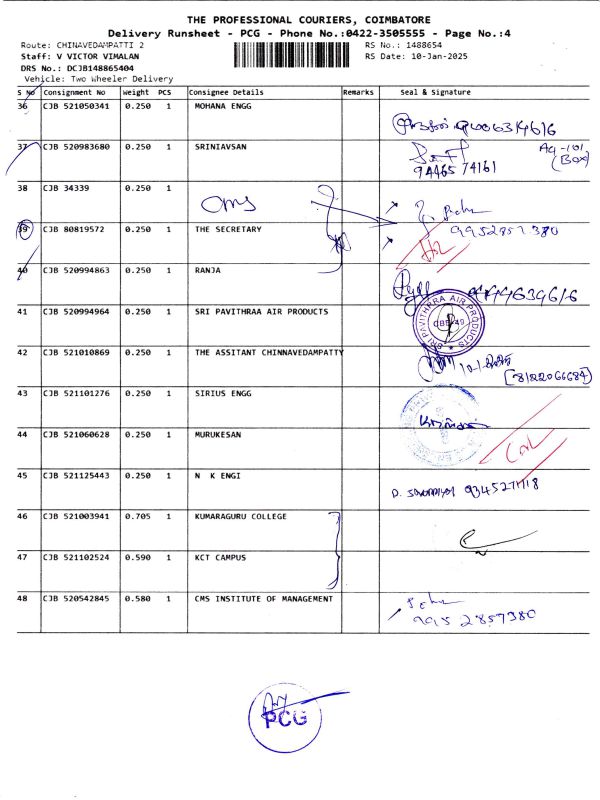 THE PROFESSIONAL COURIERS, COIMBATORE
Delivery Runsheet - PCG - Phone No.:0422-3505555 - Page No.:4
Route: CHINAVEDAMPATTI 2 RS No.: 1488654
Staff: V VICTOR VIMALAN RS Date: 10-Jan-2025
DRS No.: DCJB148865404
Vehicle: Two Wheeler Delivery
S No Consignment No Weight PCS Consignee Details Remarks Seal & Signature
36 CJB 521050341 0.250 1 MOHANA ENGG
37 CJB 520983680 0.250 1 SRINIAVSAN
94465 74161 (BOX)
38 CJB 34339 0.250 1
CMS
39 CJB 80819572 0.250 1 THE SECRETARY 9952857380
40 CJB 520994863 0.250 1 RANJA
41 CJB 520994964 0.250 1 SRI PAVITHRAA AIR PRODUCTS
SRI PAVITHRA AIR PRODUCTS
CBE-49
42 CJB 521010869 0.250 1 THE ASSITANT CHINNAVEDAMPATTY
43 CJB 521101276 0.250 1 SIRIUS ENGG
44 CJB 521060628 0.250 1 MURUKESAN
45 CJB 521125443 0.250 1 N K ENGI
46 CJB 521003941 0.705 1 KUMARAGURU COLLEGE
47 CJB 521102524 0.590 1 KCT CAMPUS
48 CJB 520542845 0.580 1 CMS INSTITUTE OF MANAGEMENT
9952857380
PCG